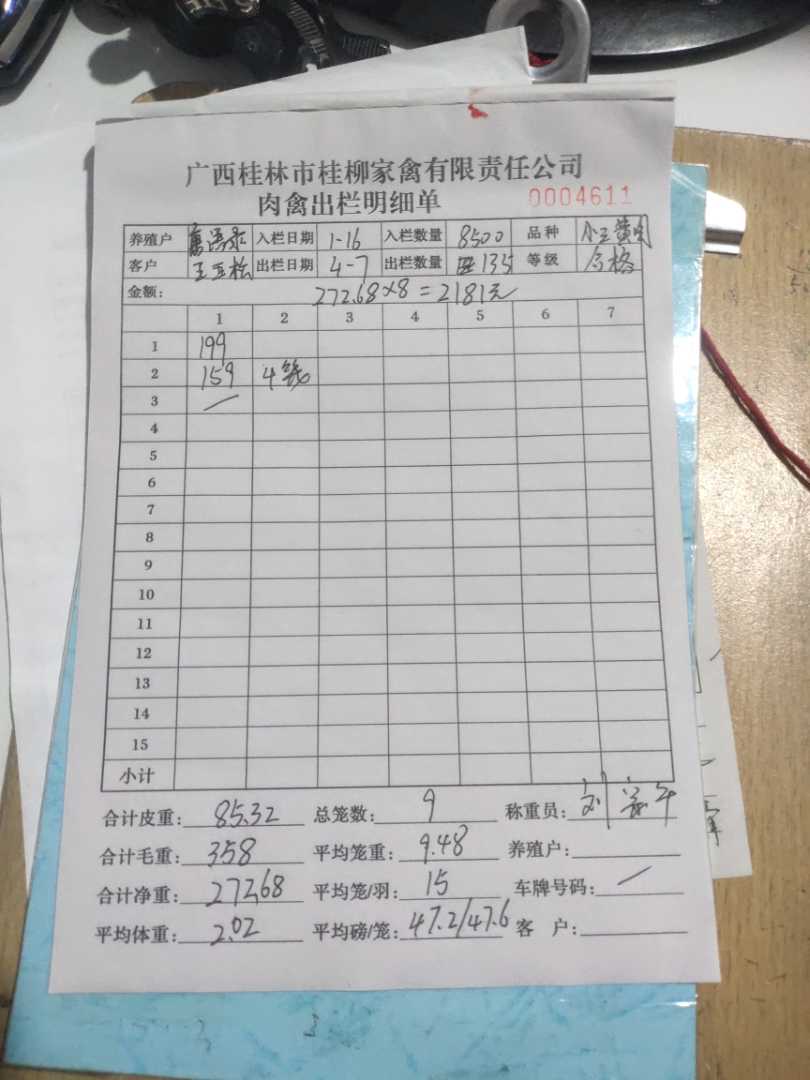 广西桂林市桂柳家禽有限责任公司
肉禽出栏明细单 0004611
养殖户 入栏日期 1-16 入栏数量 8500 品种
客户 王玉松 出栏日期 4-7 出栏数量 135 等级 合格
金额: 272.68×8=2181元
1 2 3 4 5 6 7
1 199
2 159 4笼
3 /
4
5
6
7
8
9
10
11
12
13
14
15
小计
合计皮重: 85.32 总笼数: 9 称重员: 刘
合计毛重: 358 平均笼重: 9.48 养殖户:
合计净重: 272.68 平均笼/羽: 15 车牌号码: /
平均体重: 2.02 平均磅/笼: 47.2/47.6 客 户: